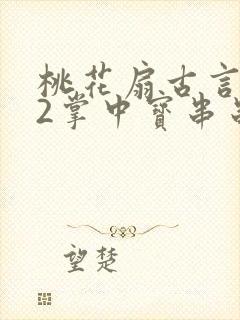 桃花扇古言
2掌中寳串
望楚